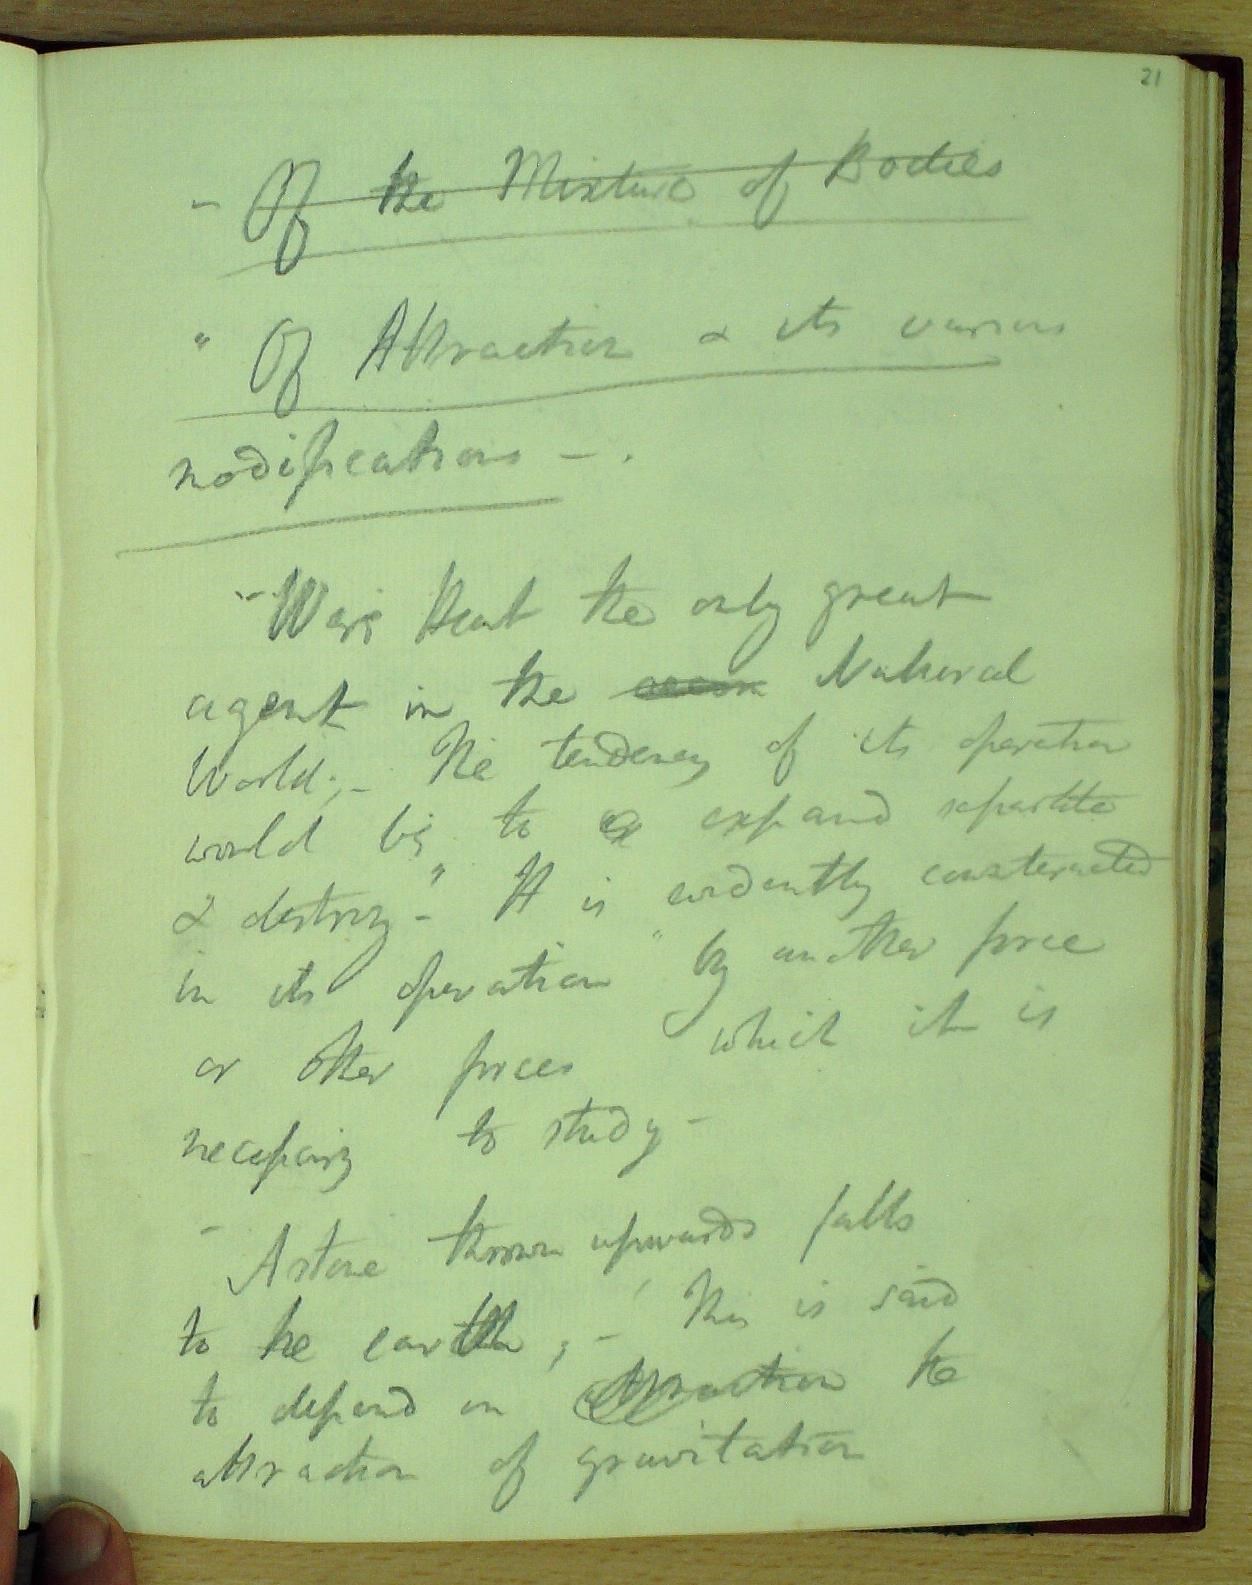 21
- Of the Mixture of Bodies
" Of Attraction & its various
modifications - .
"Were Heat the only great
agent in the Natural
World; - The tendency of its operation
would be to expand separate
& destroy - " It is evidently counteracted
in its operation " by another force
or other forces which it is
necessary to study -
- A stone thrown upwards falls
to the earth ; - This is said
to depend on attraction the
attraction of gravitation